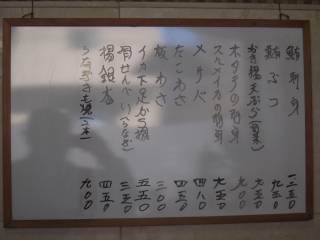 鮪刺身 一、二五〇
鮪ぶつ 九五〇
かき揚天ぷら(野菜) 七五〇
ホタテの刺身 九〇〇
スルメイカの刺身 七五〇
メサバ 四八〇
たこわさ 四五〇
板わさ 三〇〇
イカ下足から揚 五五〇
骨せんべい(うなぎ) 三五〇
揚銀杏 四五〇
うなぎきも焼(二本) 九〇〇